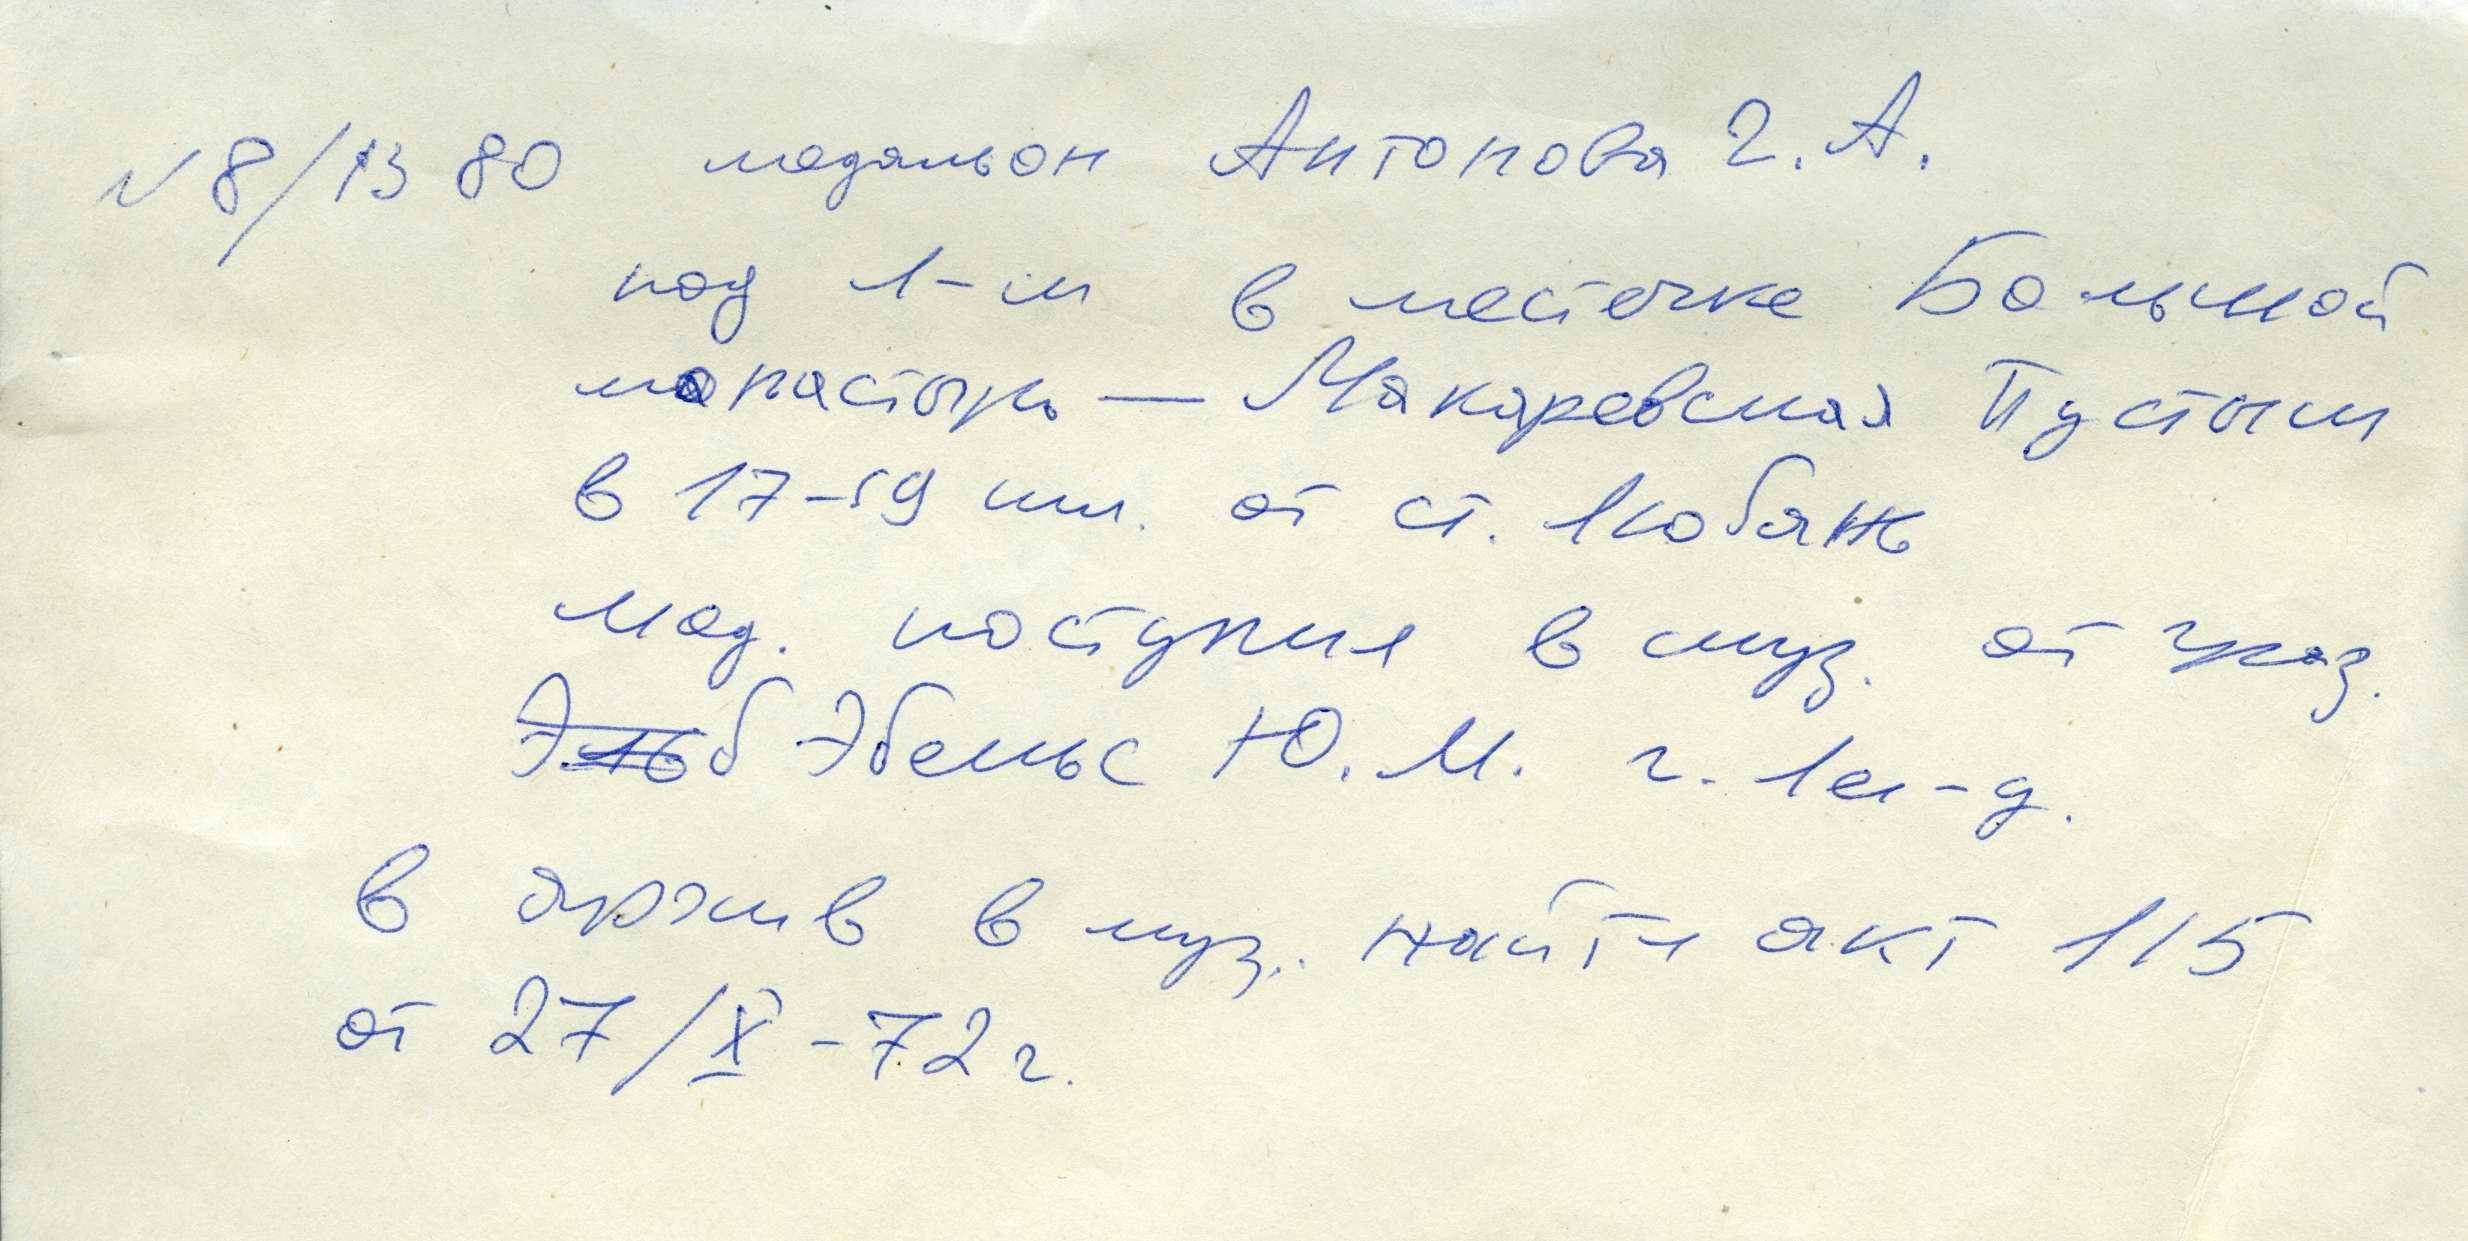 № 8/1380 медальон Антонова Г. А.
под Л-м в местечке Большой
монастырь — Макаревская Пустынь
в 17-19 км. от ст. Любань
Мед. поступил в муз. от граж.
Эбельс Ю. М. г. Лен-д.
в архив в муз. найти акт 115
от 27/X-72 г.